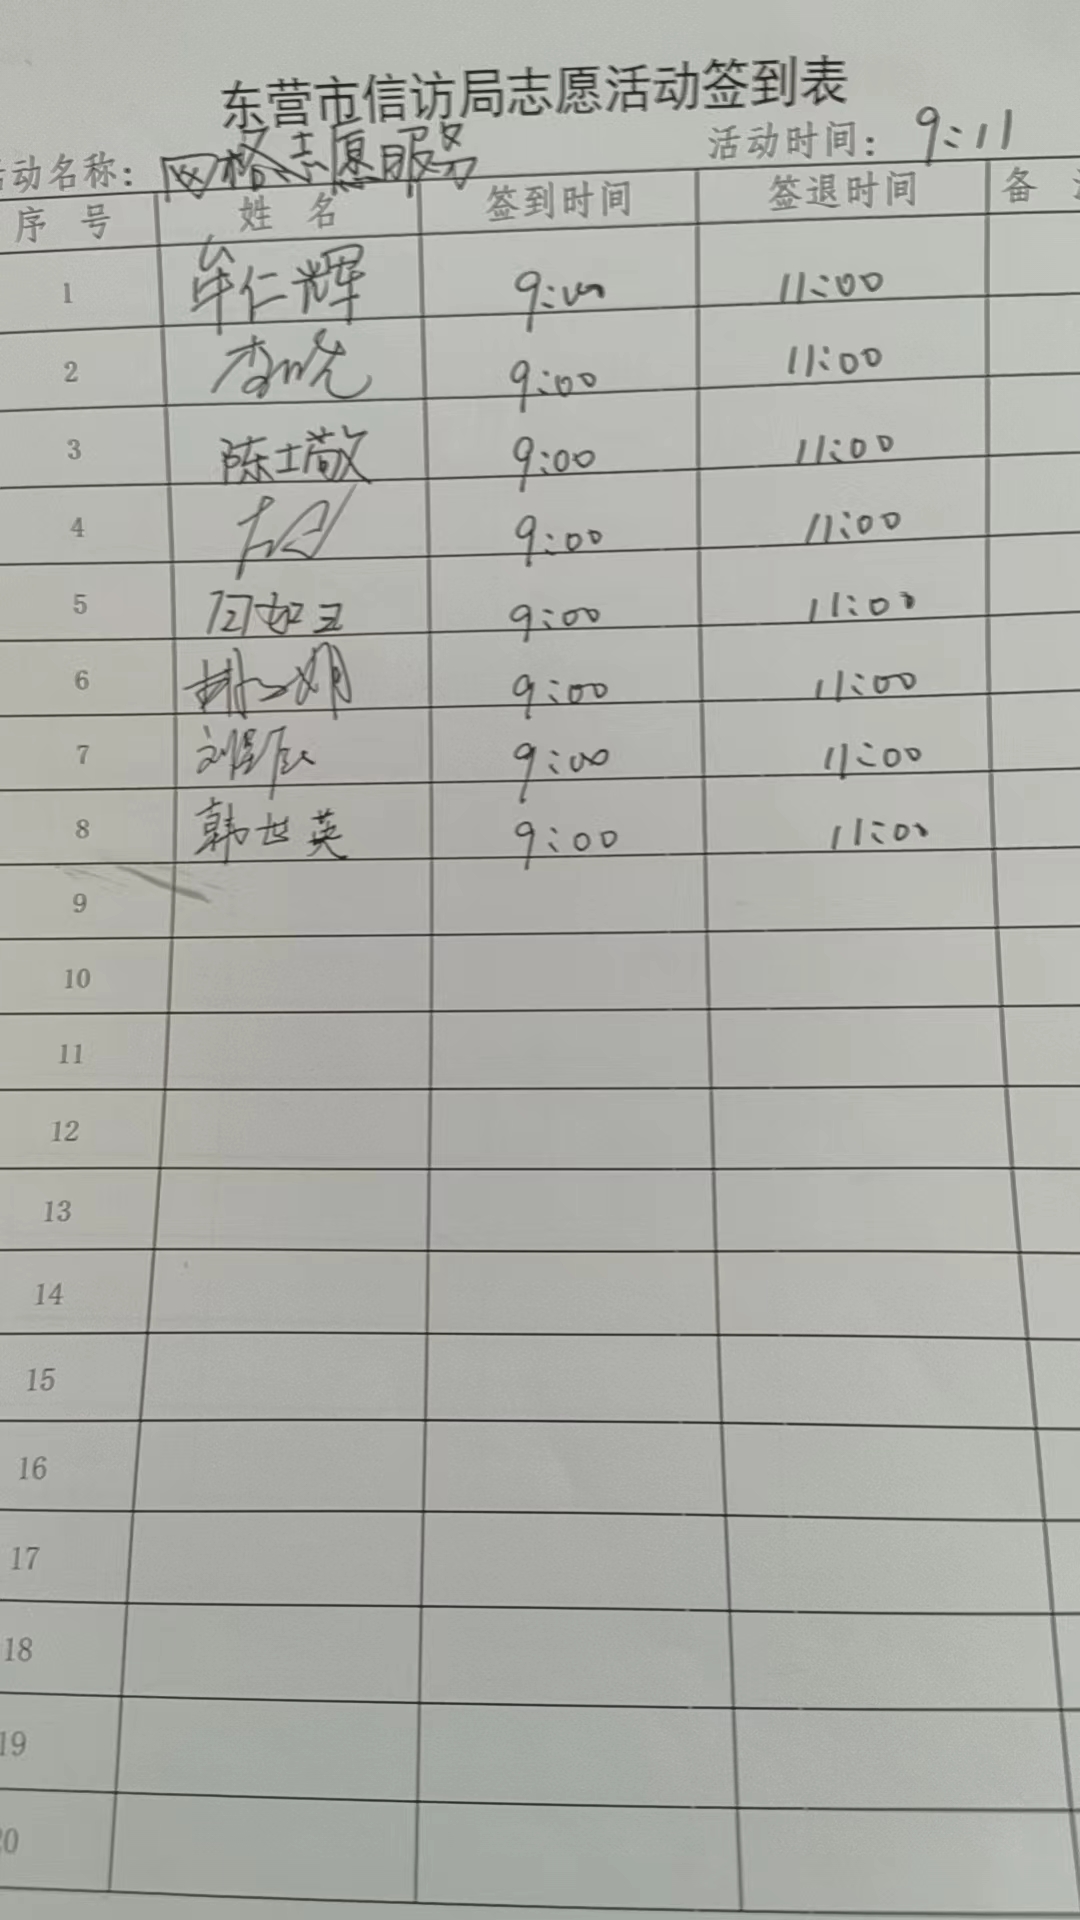 东营市信访局志愿活动签到表
活动名称：网格志愿服务 活动时间：9:11
序 号 姓 名 签到时间 签退时间 备
1 牟仁辉 9:00 11:00
2 9:00 11:00
3 陈士敬 9:00 11:00
4 9:00 11:00
5 9:00 11:00
6 9:00 11:00
7 9:00 11:00
8 韩世英 9:00 11:00
9
10
11
12
13
14
15
16
17
18
19
20